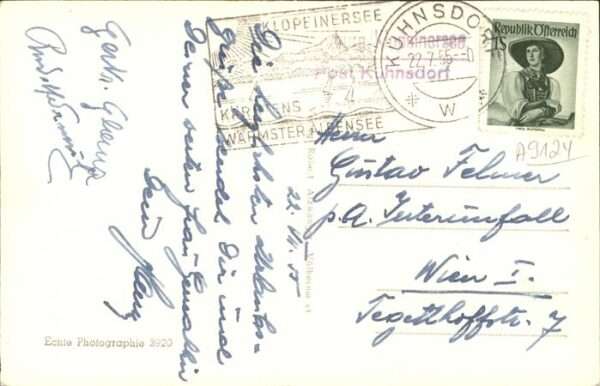 KLOPEINERSEE
KÄRNTENS
WÄRMSTER ALPENSEE
KÜHNSDORF
22.7.55
W
Post Kühnsdorf
Republik Österreich
1S
A9124
Die herzlichsten Urlaubs-
grüße sendet Dir und
Deiner werten Frau Gemahlin
Dein
22. VII. 55
Herrn
Gustav Felmer
p.A. Interunfall
Wien I.
Tegetthoffstr. 7
Echte Photographie 3920